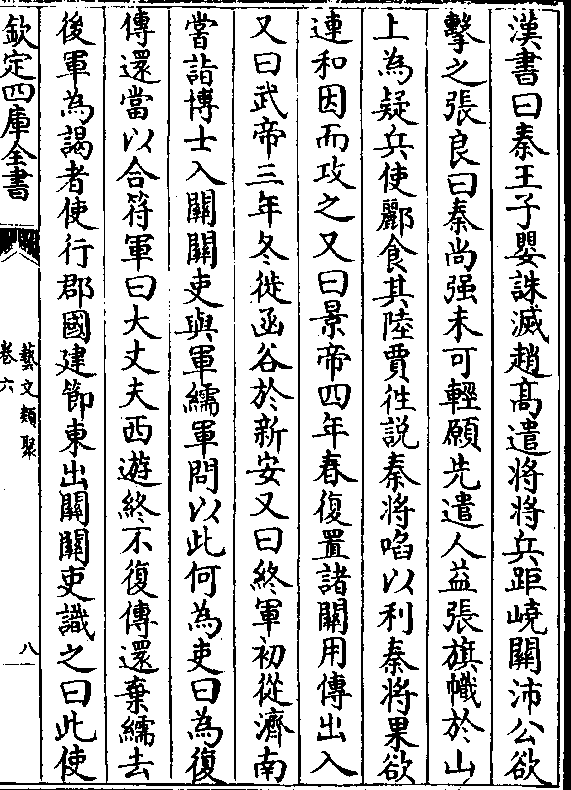 漢書曰秦王子嬰誅滅趙髙遣將將兵距嶢關沛公欲
擊之張良曰秦尚强未可輕願先遣人益張旗幟於山
上為疑兵使酈食其陸賈徃説秦將啗以利秦將果欲
連和因而攻之又曰景帝四年春復置諸關用傳出入
又曰武帝三年冬徙函谷於新安又曰終軍初從濟南
當詣博士入關關吏與軍繻軍問以此何為吏曰為復
傳還當以合符軍曰大丈夫西遊終不復傳還棄繻去
後軍為謁者使行郡國建節東出關關吏識之曰此使
欽定四庫全書
藝文類聚
卷六
八